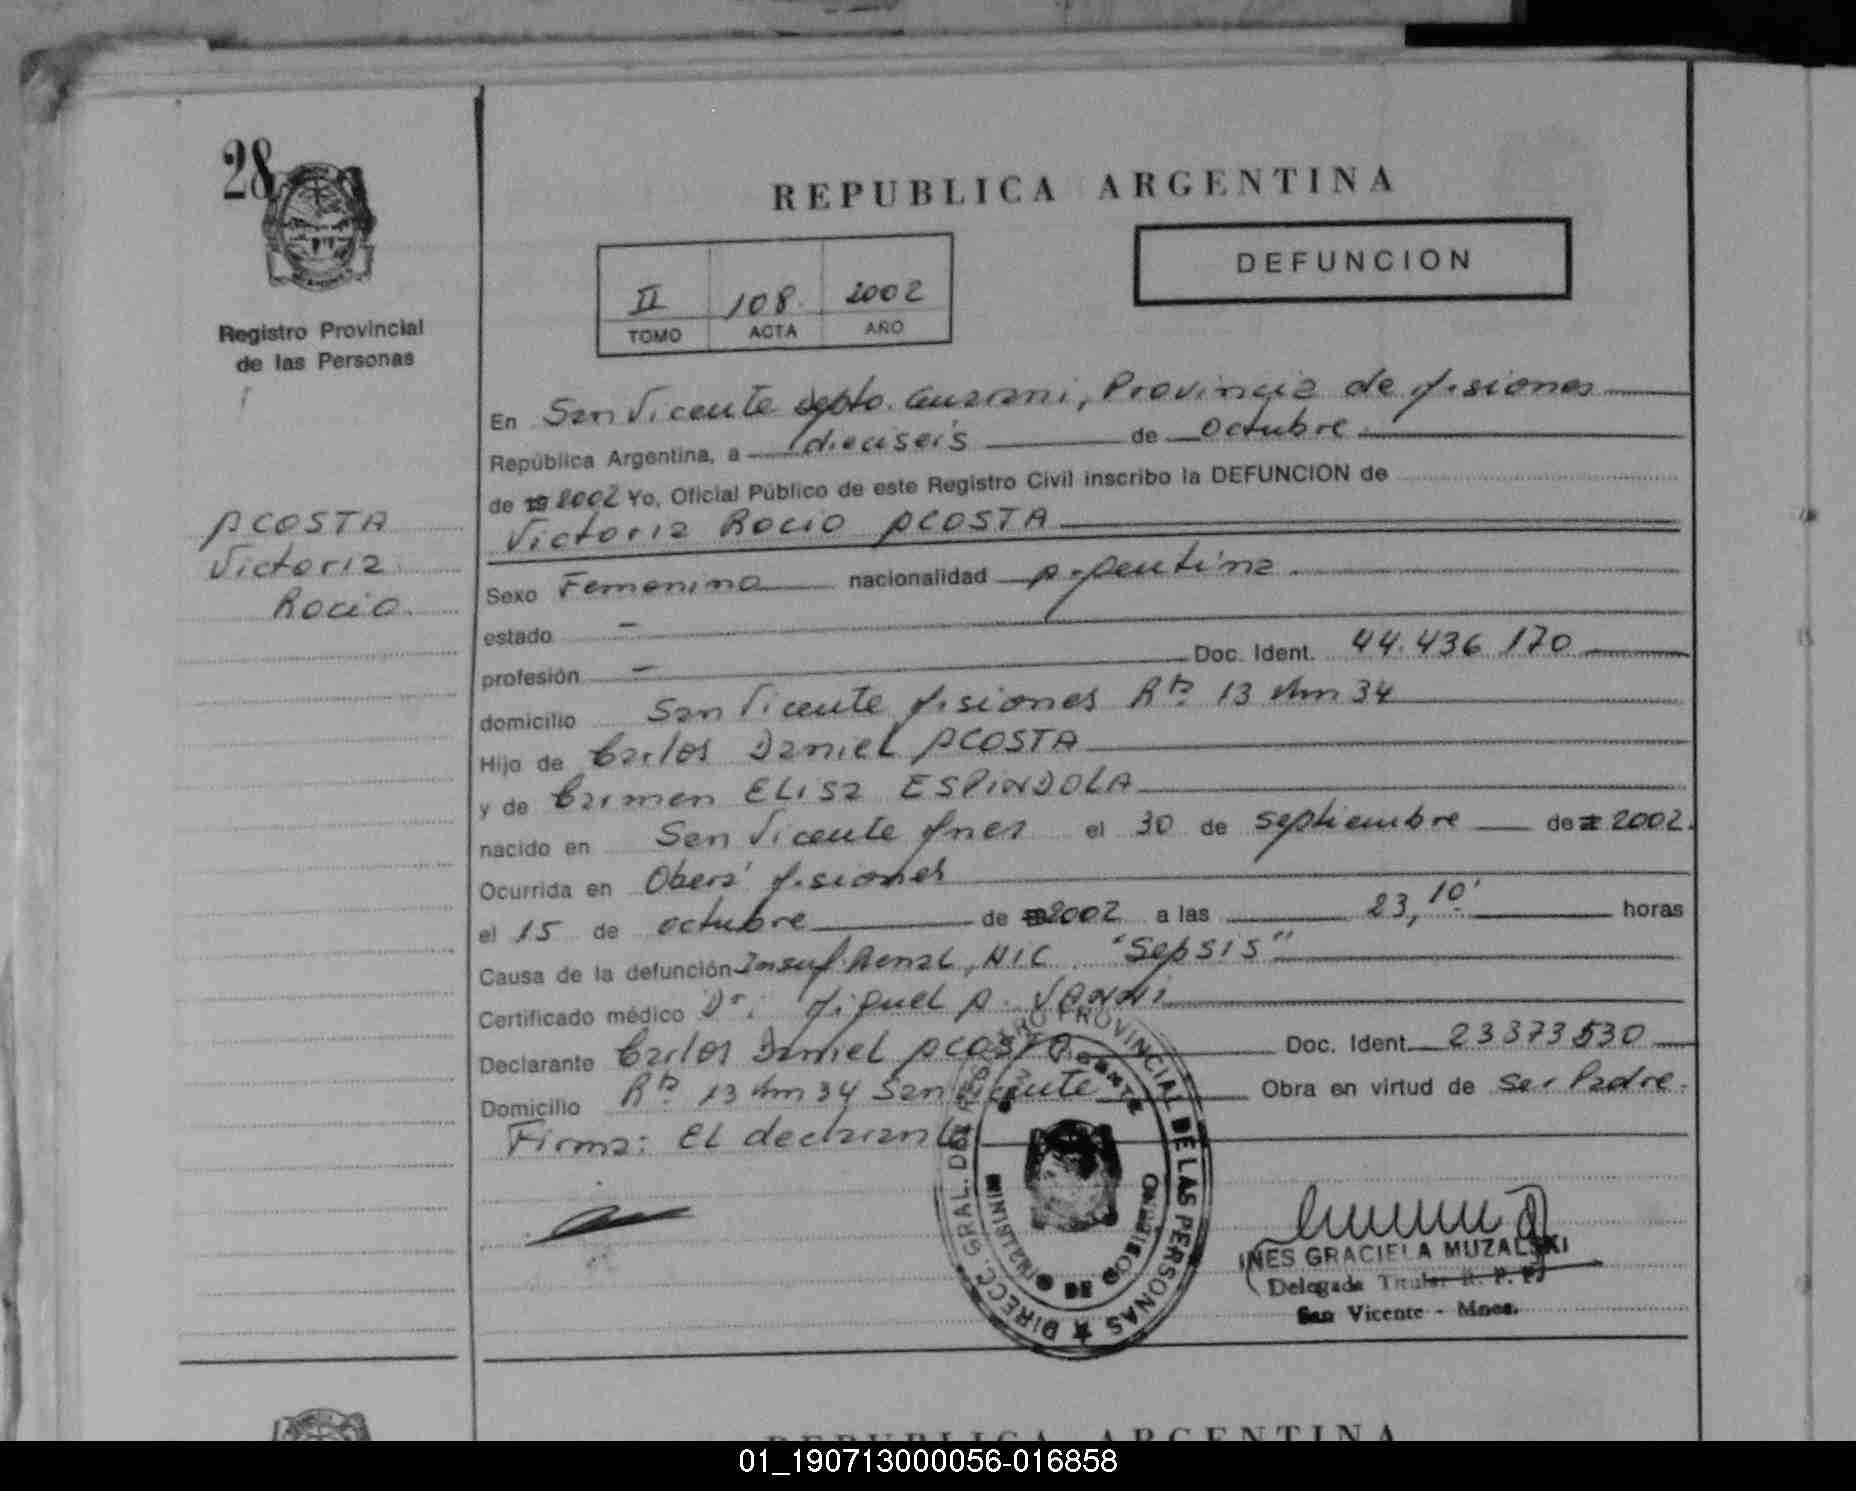 28
REPUBLICA ARGENTINA
DEFUNCION
II 108 2002
TOMO ACTA AÑO
Registro Provincial
de las Personas
En San Vicente Depto. Guarani, Provincia de Misiones
República Argentina, a dieciseis de octubre
de 19 2002 Yo, Oficial Público de este Registro Civil inscribo la DEFUNCION de
Victoria Rocio ACOSTA
ACOSTA
Victoria
Rocio
Sexo Femenino nacionalidad Argentina
estado —
profesión — Doc. Ident. 44.436.170
domicilio San Vicente Misiones Rta 13 Km 34
Hijo de Carlos Daniel ACOSTA
y de Carmen ELisa ESPINDOLA
nacido en San Vicente Mnes el 30 de septiembre de 2002.
Ocurrida en Oberá Misiones
el 15 de octubre de 2002 a las 23,10' horas
Causa de la defunción Insuf. Renal, NIC "Sepsis"
Certificado médico Dr: Miguel A.
Declarante Carlos Daniel ACOSTA Doc. Ident. 23873530
Domicilio Rta 13 Km 34 San Vicente Obra en virtud de Ser Padre.
Firma: EL declarante
DIRECC. GRAL. DEL REGISTRO PROVINCIAL DE LAS PERSONAS ★
MINISTERIO DE GOBIERNO
INES GRACIELA MUZALSKI
Delegada Titular R. P. P.
San Vicente - Mnes.
REPUBLICA ARGENTINA
01_190713000056-016858